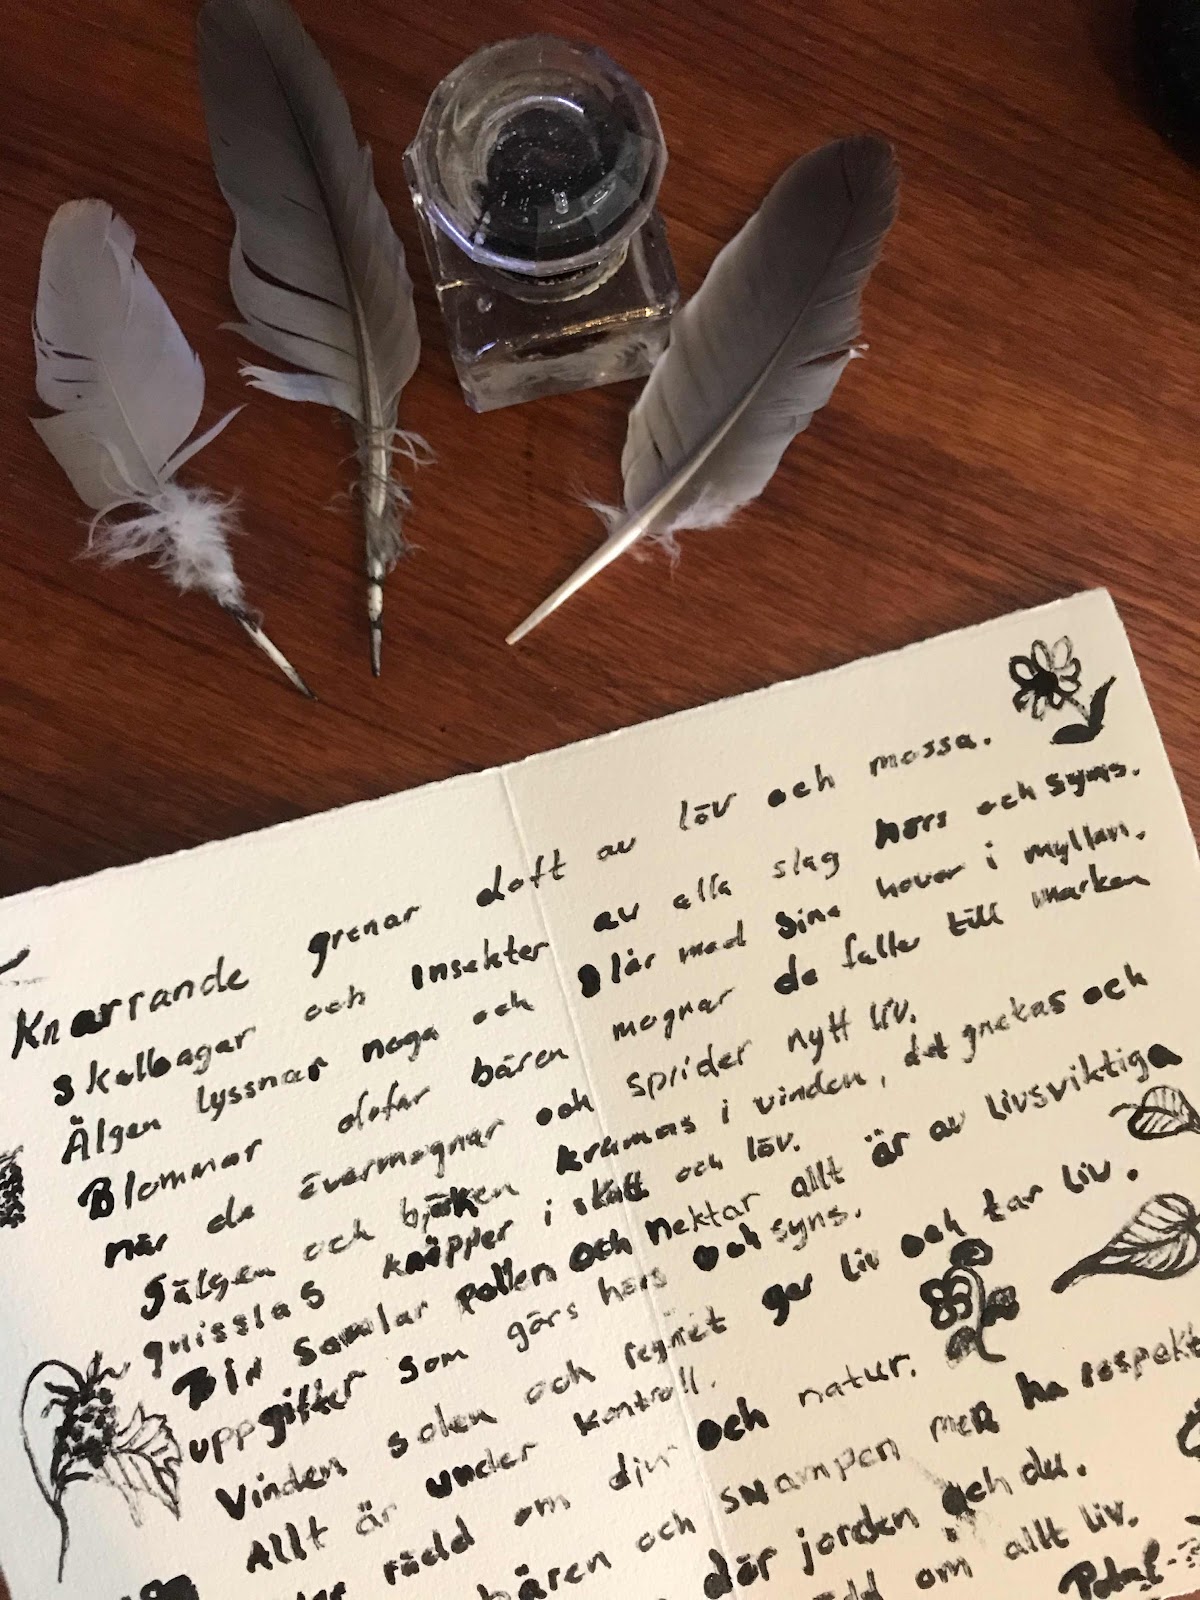 Knarrande grenar doft av löv och mossa.
Skalbagar och Insekter av alla slag hörs och syms.
Älgen lyssnar noga och slår med sine hovar i myllan.
Blommar dofar bären mognar de faller till marken
när de övermognar och sprider nytt liv.
Sälgen och björken kramas i vinden, det gnekas och
gnisslas knäpper i skatt och löv.
Bin samlar pollen och nektar allt är av livsviktiga
uppgifter som görs hörs och syns.
Vinden solen och regnet ger liv och tar liv.
Allt är under kontroll.
rädd om djur och natur.
bären och svampen men ha respekt
där jorden och du.
om allt liv.